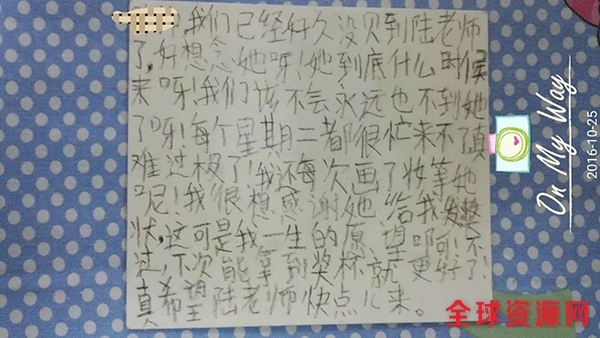 我们已经好久没贝到陆老师
了,好想念她呀!她到底什么时候
来呀!我们该不会永远也不到她
了呀!每个星期二都很忙来不了真
难过极了!我还每次画了妆等她
呢!我很想感谢她给我发奖
状,这可是我一生的愿望啊可不
过,下次能拿到奖杯就更好了!
真希望陆老师快点儿来。
On My Way
2016-10-25
全球资源网